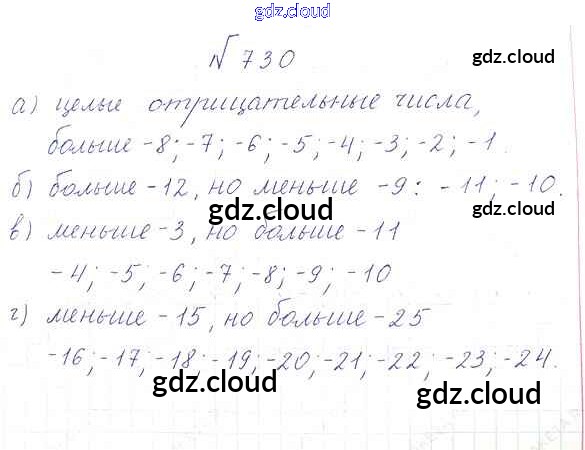 gdz.cloud
№ 730
gdz.cloud
а) целые отрицательные числа,
больше -8; -7; -6; -5; -4; -3; -2; -1.
б) больше -12, но меньше -9: -11; -10.
gdz.cloud
gdz.cloud
в) меньше -3, но больше -11
-4; -5; -6; -7; -8; -9; -10
г) меньше -15, но больше -25
-16; -17; -18; -19; -20; -21; -22; -23; -24.
gdz.cloud
gdz.cloud